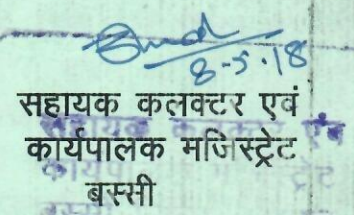 8-5-18
सहायक कलक्टर एवं
कार्यपालक मजिस्ट्रेट
बस्सी